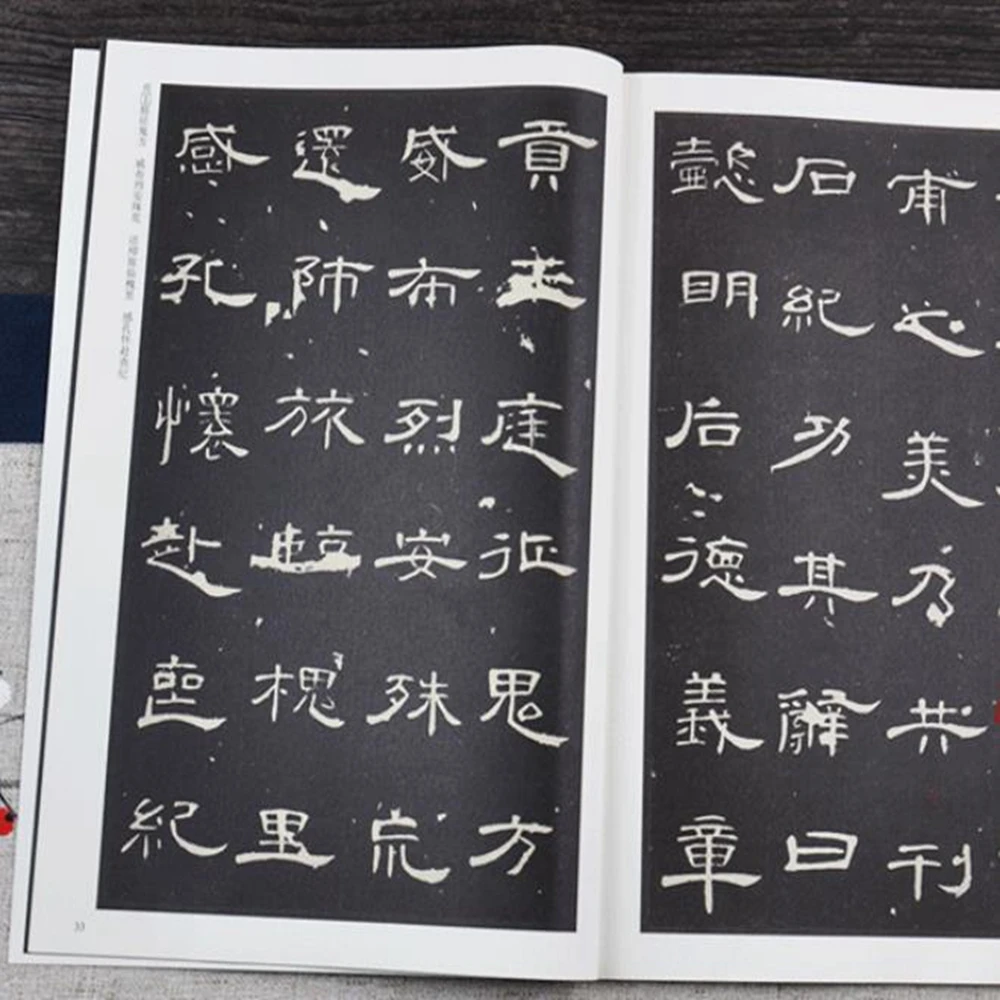 甫之美乃共刊
石紀功其辭曰
懿明后德義章
貢王庭征鬼方
威布烈安殊巟
還師旅臨槐里
感孔懷赴喪紀